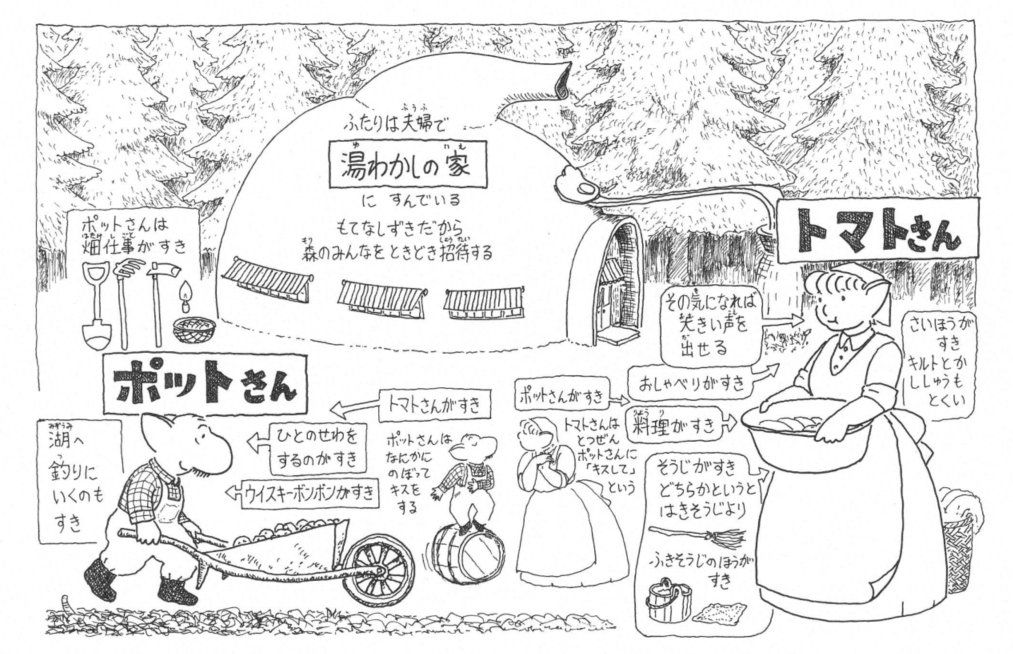 ふたりは夫婦で
湯わかしの家
に すんでいる
もてなしずきだから
森のみんなをときどき招待する
ポットさんは
畑仕事がすき
ポットさん
湖へ
釣りに
いくのも
すき
トマトさんがすき
ひとのせわを
するのがすき
ウイスキーボンボンがすき
ポットさんは
なにかに
のぼって
キスを
する
トマトさん
その気になれば
大きい声を
出せる
おしゃべりがすき
ポットさんがすき
料理がすき
トマトさんは
とつぜん
ポットさんに
「キスして」
という
さいほうが
すき
キルトとか
ししゅうも
とくい
そうじがすき
どちらかというと
はきそうじより
ふきそうじのほうが
すき